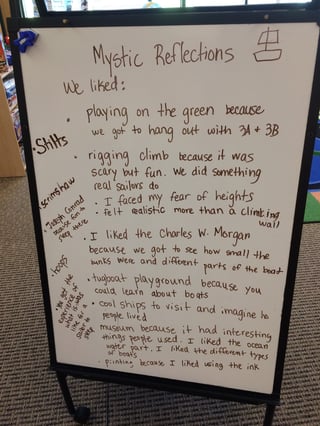 Mystic Reflections
We liked:
• playing on the green because
we got to hang out with 3A + 3B
• Stilts
• rigging climb because it was
scary but fun. We did something
real sailors do
• scrimshaw
• I faced my fear of heights
• felt realistic more than a climbing
wall
• Joseph Conrad
because
sleep there
• I liked the Charles W. Morgan
because we got to see how small the
bunks were and different parts of the boat
• hoops
• tugboat playground because you
could learn about boats
• you got the
experience of
what it was
like to
sleep
• cool ships to visit and imagine how
people lived
museum because it had interesting
things people used. I liked the ocean
water part. I liked the different types
of boats
• printing because I liked using the ink